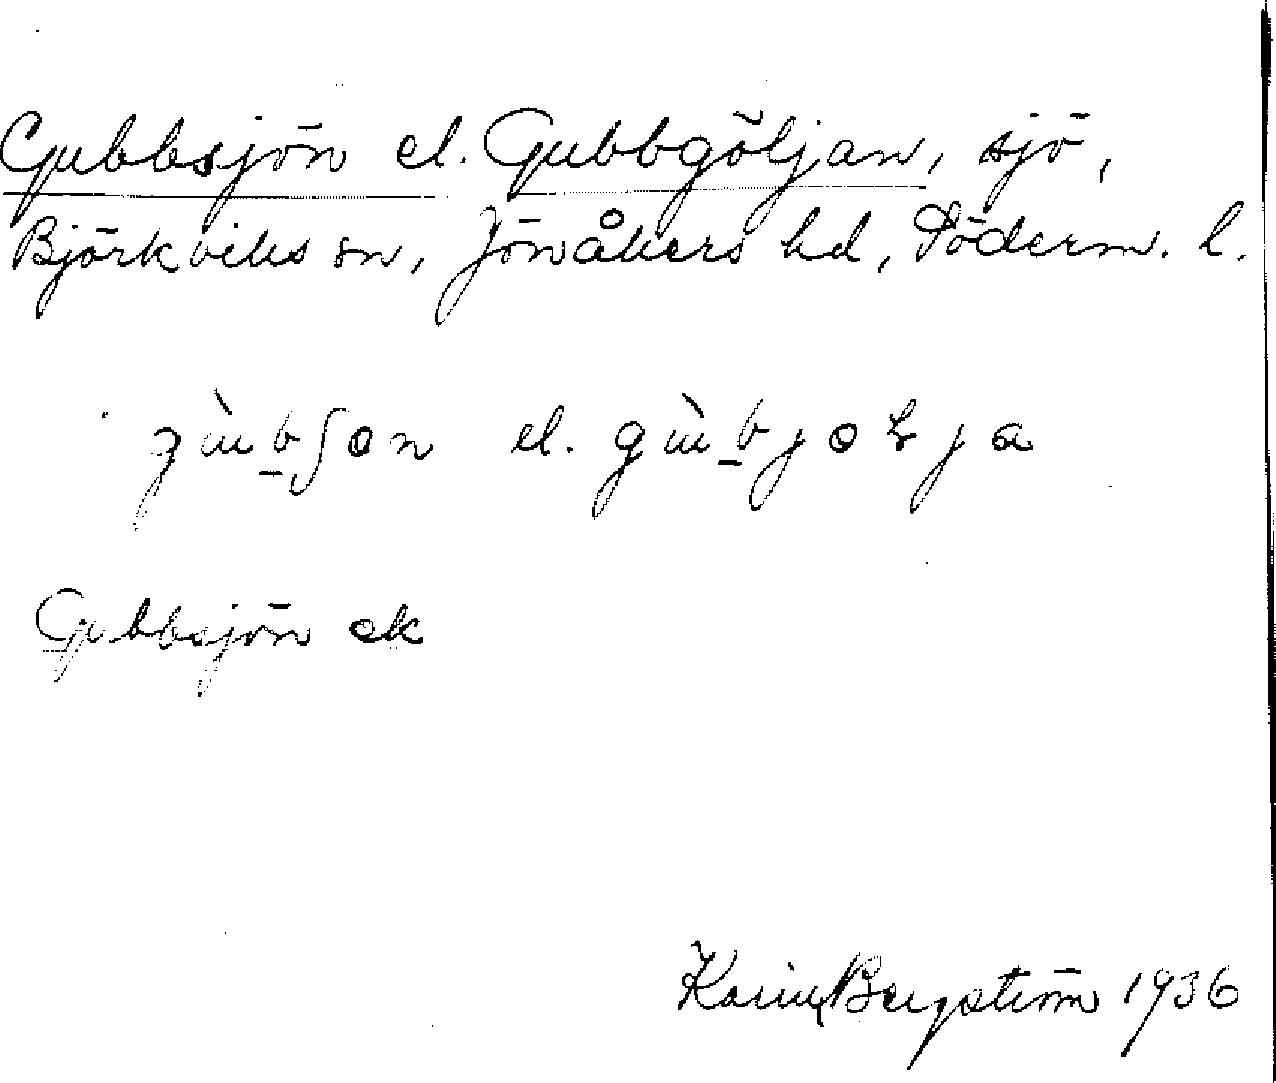 Gubbsjön el. Gubbgöljan, sjö,
Björkviks sn, Jönåkers hd, Söderm. l.
gùb̲ʃon el. gùb̲joɫja
Gubbsjön ek
Karin Bergström 1936